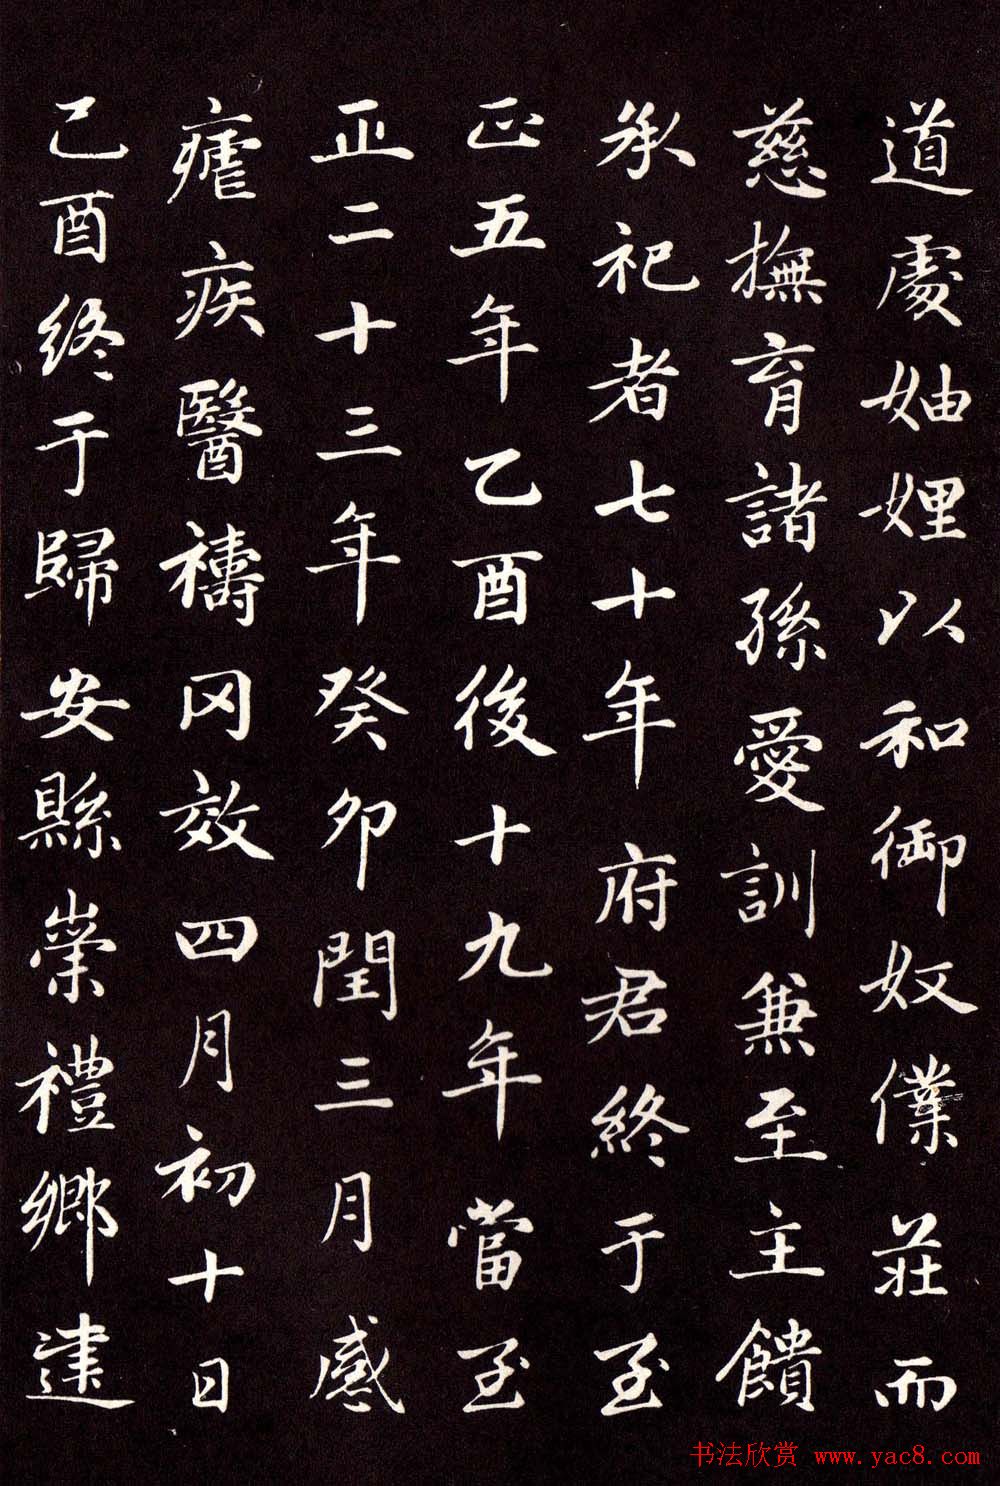 道處妯娌以和御奴僕莊而
慈撫育諸孫愛訓兼至主饋
承祀者七十年府君終于至
正五年乙酉後十九年當至
正二十三年癸卯閏三月感
瘧疾醫禱冈效四月初十日
己酉终于歸安縣崇禮鄉建
书法欣赏 www.yac8.com